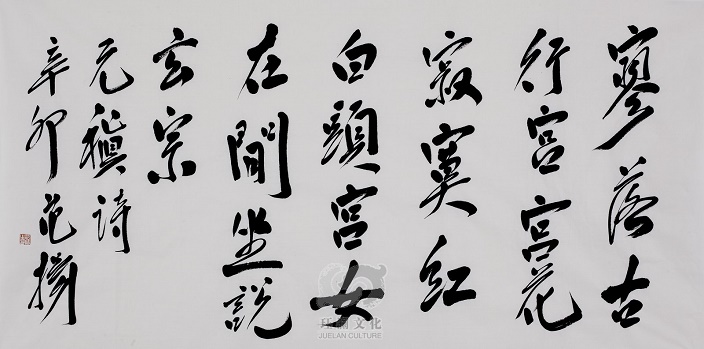 寥落古
行宫宫花
寂寞红
白頭宫女
在閒坐說
玄宗
元稹诗
辛卯范揚
文化
JUELAN CULTURE